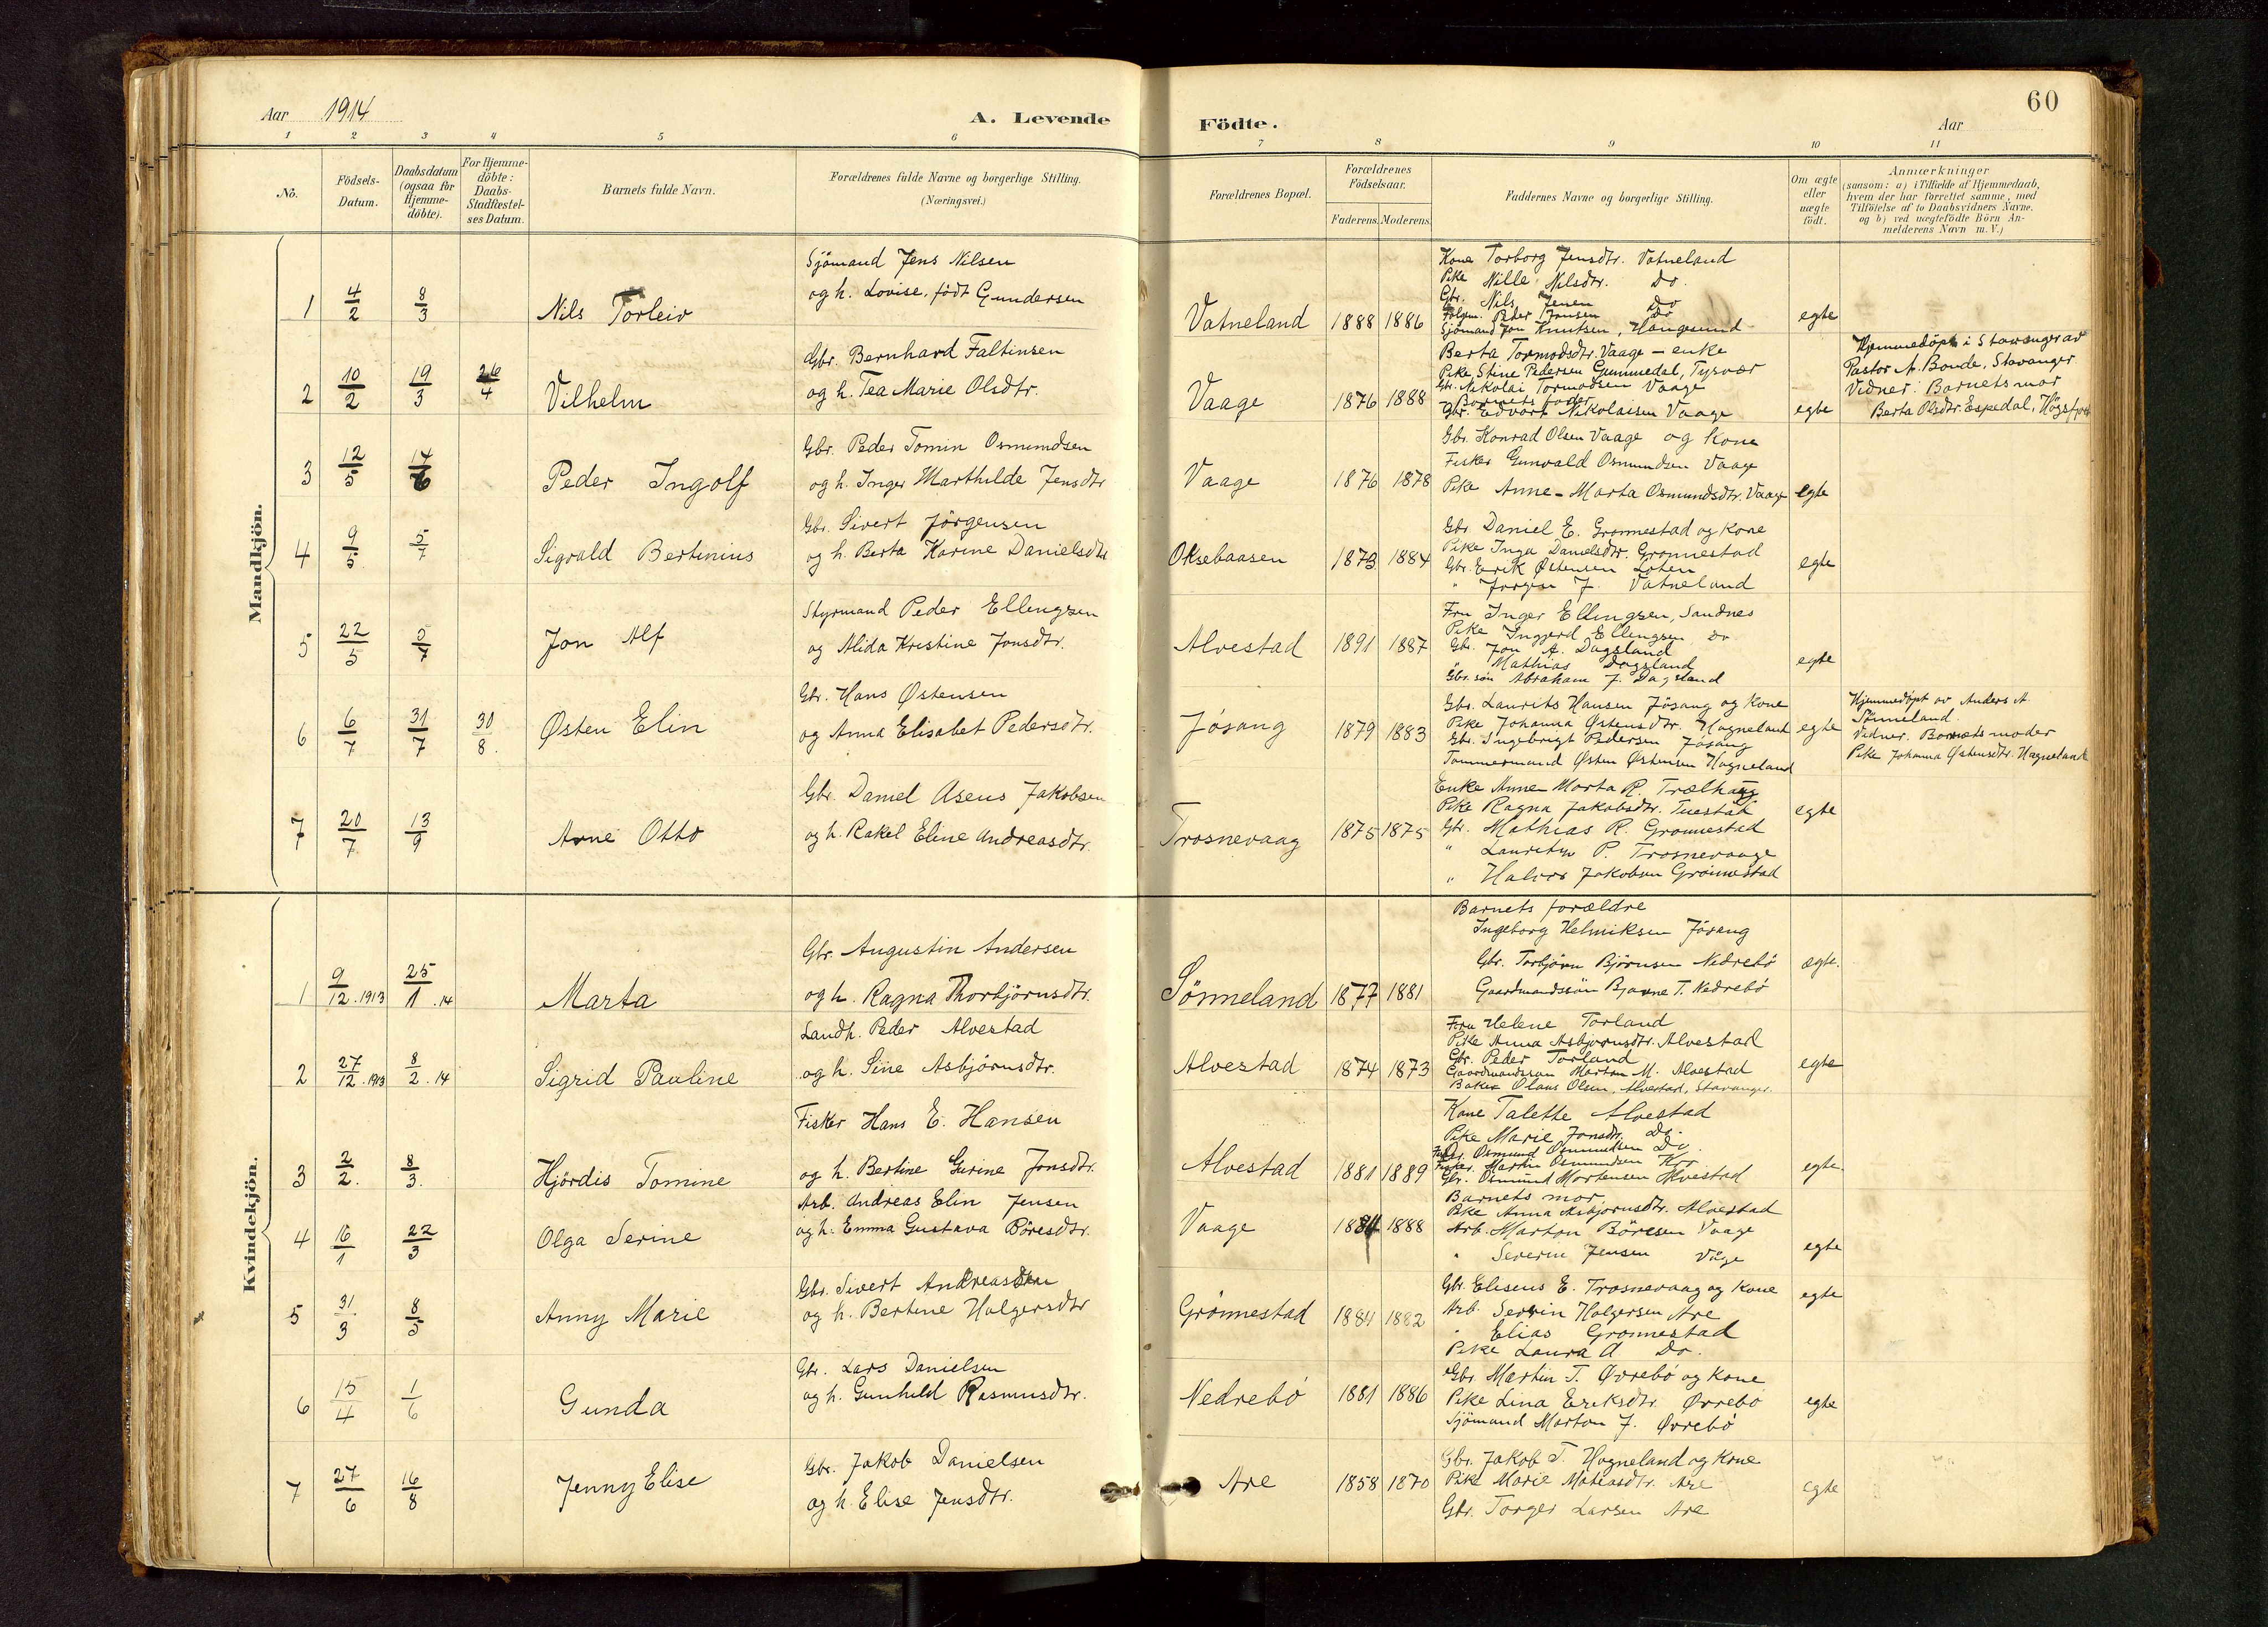 60
Aar 1914
A. Levende Födte.
Aar
1 2 3 4 5 6 7 8 9 10 11
No.
Födsels-Datum.
Daabsdatum (ogsaa for Hjemme-döbte).
For Hjemme-döbte: Daabs-Stadfæstel-ses Datum.
Barnets fulde Navn.
Forældrenes fulde Navne og borgerlige Stilling. (Næringsvei.)
Forældrenes Bopæl.
Forældrenes Födselsaar.
Faderens. Moderens.
Faddernes Navne og borgerlige Stilling.
Om ægte eller uægte födt.
Anmærkninger (saasom: a) i Tilfælde af Hjemmedaab, hvem der har forrettet samme, med Tilföielse af to Daabsvidners Navne. og b) ved uægtefödte Börn An-melderens Navn m. V.)
Mandkjön.
1 4/2 8/3 Nils Torleiv
Sjömand Jens Nilsen
og h. Lovise, födt Gundersen
Vatneland 1888 1886
Kone Torborg Jensdtr. Vatneland
Pike Nille Nilsdtr. Do.
Gbr. Nils Jensen Do
Peder Jonsen Do
Sjömand Jon Knutsen, Haugesund
egte
2 10/2 19/3 26/4 Vilhelm
Gbr. Bernhard Faltinsen
og h. Tea Marie Olsdtr.
Vaage 1876 1888
Berta Tormodsdtr. Vaage - enke
Pike Stine Pedersen Gummedal, Tysvær
Gbr. Nikolai Tormodsen Vaage
- Barnets fader
Gbr. Edvart Nikolaisen Vaage
egte
Hjemmedöpt i Stavanger av
Pastor A. Bonde, Stavanger.
Vidner: Barnets mor
Berta Olsdtr. Espedal, Högsfjord
3 12/5 14/6 Peder Ingolf
Gbr. Peder Tomin Osmundsen
og h. Inger Marthilde Jensdtr
Vaage 1876 1878
Gbr. Konrad Olsen Vaage og kone
Fisker Gunvald Osmundsen Vaage
Pike Anne-Marta Osmundsdtr. Vaage
egte
4 9/5 5/7 Sigvald Bertinius
Gbr. Sivert Jörgensen
og h. Berta Karine Danielsdtr
Oksebaasen 1873 1884
Gbr Daniel E. Grønnestad og kone
Pike Inga Danielsdtr. Grønnestad
Gbr. Erik Østensen Loten
" Jørgen J. Vatneland
egte
5 22/5 5/7 Jon Alf
Styrmand Peder Ellingsen
og Alida Kristine Jonsdtr.
Alvestad 1891 1887
Fru Inger Ellingsen, Sandnes
Pike Inggerd Ellingsen Do
Gbr. Jon A. Dagsland
" Mathias Dagsland
Gbr. søn Abraham J. Dagsland
egte
6 6/7 31/7 30/8. Østen Elin
Gbr. Hans Østensen
og Anna Elisabet Pedersdtr.
Jösang 1879 1883
Gbr. Laurits Hansen Jösang og kone
Pike Johanna Østensdtr. Hagneland
Gbr. Ingebrigt Pedersen Jösang
Tømmermand Østen Østensen Hagneland
egte
Hjemmedöpt av Anders A.
Sönneland
Vidner. Barnets moder
Pike Johanna Østensdtr. Hagneland
7 20/7 13/9 Arne Otto
Gbr. Daniel Aseus Jakobsen
og h. Rakel Eline Andreasdtr.
Trosnevaag 1875 1875
Enke Anne Marta R. Trælhaug
Pike Ragna Jakobsdtr. Tuastad
Gbr. Mathias R. Grønnestad
" Lauritz P. Trosnevaage
" Halvor Jakobsen Grønnestad
egte
Kvindekjön.
1 9/12.1913 25/1.14 Marta
Gbr. Augustin Andersen
og h. Ragna Thorbjörnsdtr.
Sönneland 1877 1881
Barnets forældre
Ingeborg Helmiksen Jösang
Gbr. Torbjörn Björnsen Nedrebö
Gaardmandssön Bjarne T. Nedrebö
ægte.
2 27/12.1913 8/2.14 Sigrid Pauline
Landh. Peder Alvestad
og h. Sine Asbjörnsdtr.
Alvestad 1874 1873
Fru Helene Torland
Pike Anna Asbjørnsdtr. Alvestad
Gbr. Peder Torland
Gaardmandssøn Morten M. Alvestad
Baker Olaus Olsen, Alvestad, Stavanger.
egte
3 2/2. 8/3. Hjördis Tomine
Fisker Hans E. Hansen
og h. Bertine Gurine Jonsdtr.
Alvestad 1881 1889
Kone Talette Alvestad
Pike Marie Jonsdtr. Do.
Gbr. Osmund Osmundsen Do.
Fisker Martin Osmundsen
Gbr. Osmund Mortensen Alvestad
egte.
4 16/1 22/3 Olga Serine
Arb. Andreas Elin Jensen
og h. Emma Gustava Böresdtr.
Vaage 1884 1888
Barnets mor
Pike Anna Asbjornsdtr. Alvestad
Arb. Marton Böresen Vaage
" Severin Jensen Våge
egte
5 31/3 8/5 Anny Marie
Gbr. Sivert Andreassen
og h. Bertine Holgersdtr
Grönnestad 1884 1882
Gbr. Eliseus E. Trosnevaag og kone
Arb. Servin Holgersen Are
" Elias Grønnestad
Pike Laura A Do.
egte
6 15/4 1/6 Gunda
Gbr. Lars Danielsen
og h. Gunhild Rasmusdtr.
Nedrebö 1881 1886
Gbr. Martin T. Øvrebö og kone
Pike Lina Eriksdtr. Øvrebö
Sjömand Morton J. Øvrebö
egte
7 27/6 16/8 Jenny Elise
Gbr. Jakob Danielsen
og h. Elise Jensdtr.
Are 1858 1870
Gbr. Jakob T. Hagneland og kone
Pike Marie Matiasdtr. Are
Gbr. Torger Larsen Are
egte